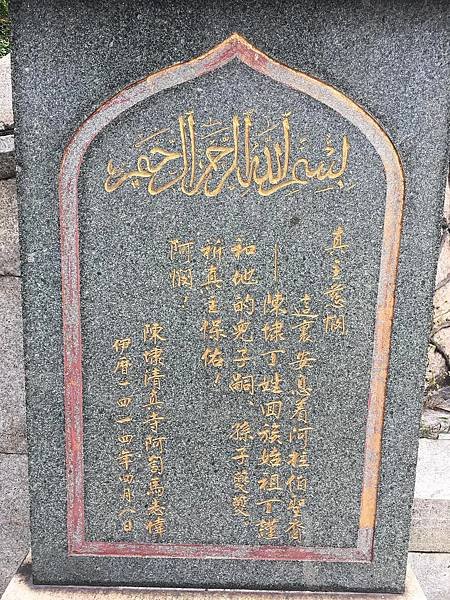 بسم الله الرحمن الرحيم
真主慈憫
這裏安息着阿拉伯聖裔
——陳埭丁姓回族始祖丁謹
和他的兒子嗣、孫子夔。
祈真主保佑！
阿憫！
陳埭清真寺阿訇馬志偉
伊曆一四一四年四月八日